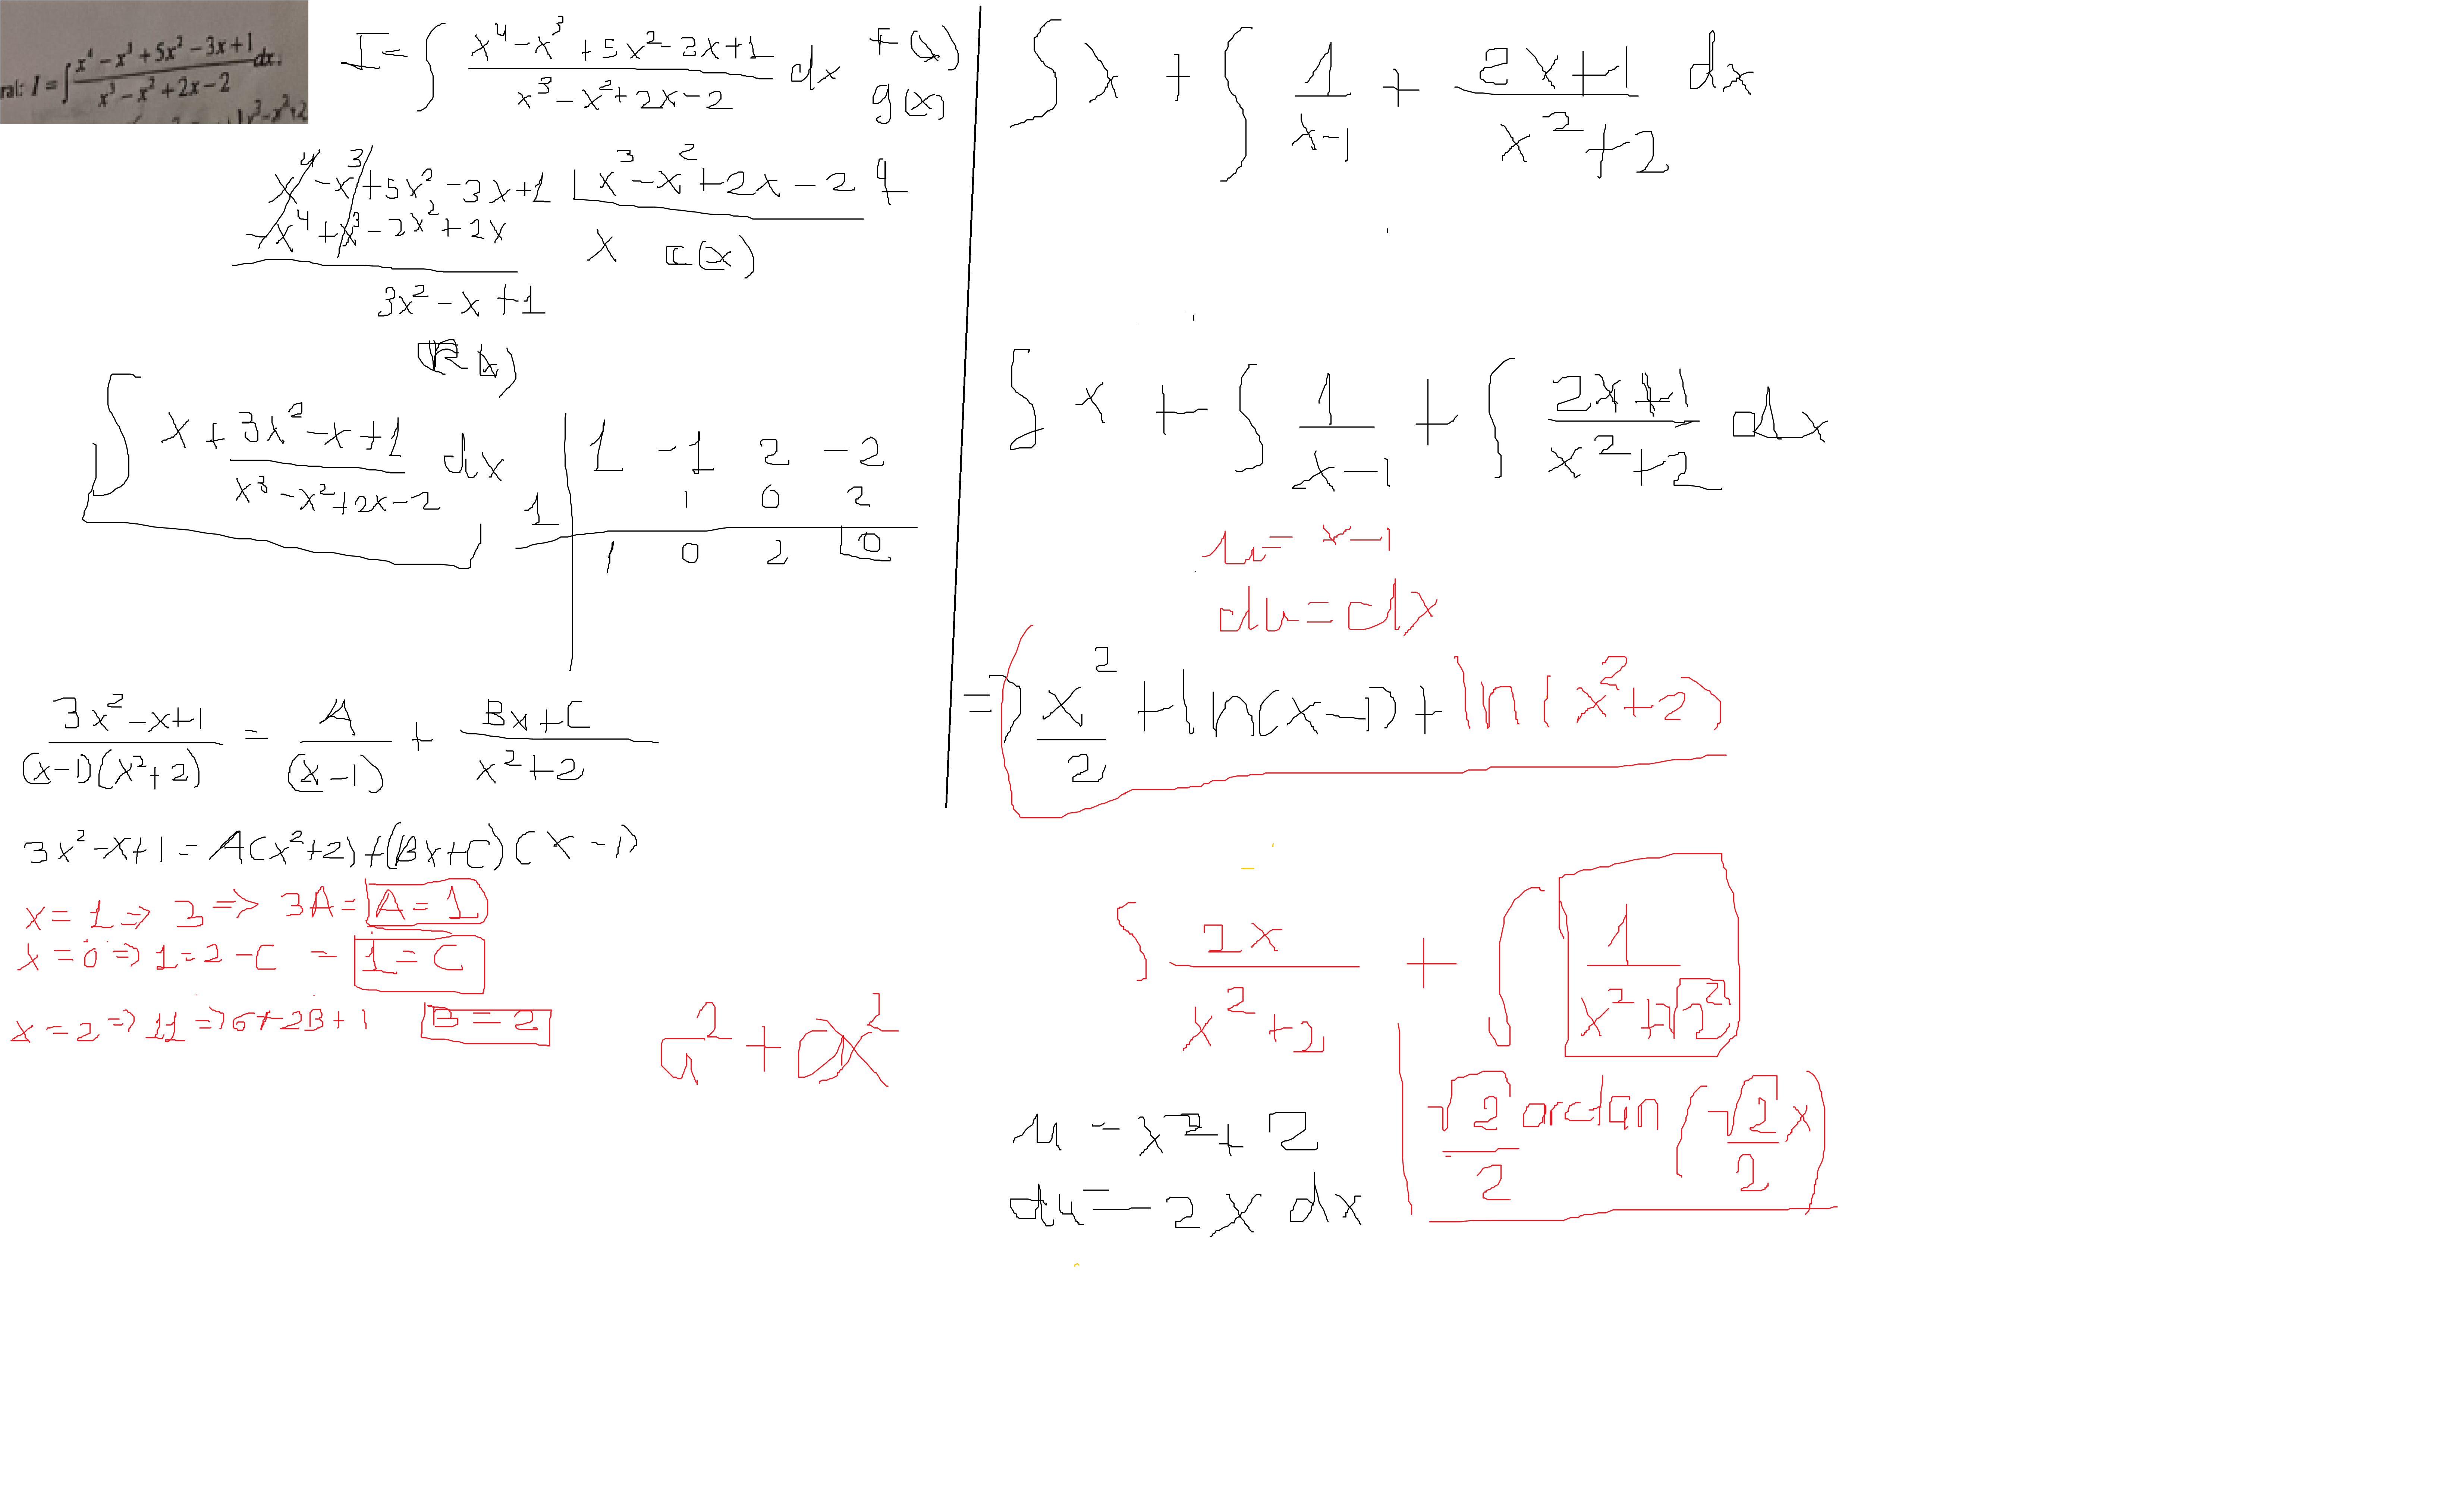 ral: I = ∫ x⁴ − x³ + 5x² − 3x + 1 / x³ − x² + 2x − 2 dx.
x³−x²+2
I = ∫ x⁴ − x³ + 5x² − 3x + 1 / x³ − x² + 2x − 2 dx F(x)
g(x)
x⁴ − x³ + 5x² − 3x + 1 | x³ − x² + 2x − 2
− x⁴ + x³ − 2x² + 2x x C(x)
3x² − x + 1
R(x)
∫ x + 3x² − x + 1 / x³ − x² + 2x − 2 dx
1 −1 2 −2
1 1 0 2
1 0 2 0
3x² − x + 1 / (x−1)(x²+2) = A / (x−1) + Bx + C / x² + 2
3x² − x + 1 = A(x²+2) + (Bx+C)(x−1)
x = 1 => 3 => 3A = A = 1
x = 0 => 1 = 2 − C = 1 = C
x = 2 => 11 => 6 + 2B + 1 B = 2
a² + x²
∫ x + ∫ 1 / x−1 + 2x+1 / x²+2 dx
∫ x + ∫ 1 / x−1 + ∫ 2x+1 / x²+2 dx
u = x−1
du = dx
=> x² / 2 + ln(x−1) + ln(x²+2)
∫ 2x / x²+2 + ∫ 1 / x²+√2²
√2 / 2 arctan (√2 / 2 x)
u = x² + 2
du = 2x dx